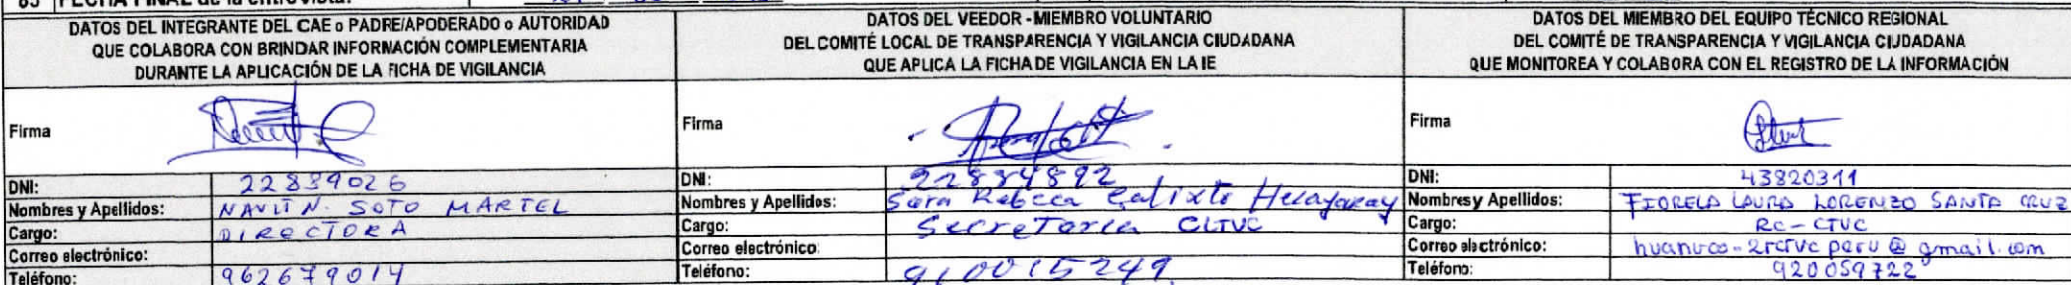 85 FECHA FINAL de la entrevista:
DATOS DEL INTEGRANTE DEL CAE o PADRE/APODERADO o AUTORIDAD
QUE COLABORA CON BRINDAR INFORMACIÓN COMPLEMENTARIA
DURANTE LA APLICACIÓN DE LA FICHA DE VIGILANCIA
Firma
DNI: 22839026
Nombres y Apellidos: NAVIT N. SOTO MARTEL
Cargo: DIRECTORA
Correo electrónico:
Teléfono: 962679014
DATOS DEL VEEDOR - MIEMBRO VOLUNTARIO
DEL COMITÉ LOCAL DE TRANSPARENCIA Y VIGILANCIA CIUDADANA
QUE APLICA LA FICHA DE VIGILANCIA EN LA IE
Firma
DNI: 22884892
Nombres y Apellidos: Sara Rebeca Calixto
Cargo: Secretaria CLTVC
Correo electrónico:
Teléfono: 910015249
DATOS DEL MIEMBRO DEL EQUIPO TÉCNICO REGIONAL
DEL COMITÉ DE TRANSPARENCIA Y VIGILANCIA CIUDADANA
QUE MONITOREA Y COLABORA CON EL REGISTRO DE LA INFORMACIÓN
Firma
DNI: 43820311
Nombres y Apellidos: FIORELA LAURA LORENZO SANTA CRUZ
Cargo: RC-CTVC
Correo electrónico: huanuco-2rctvcperu@gmail.com
Teléfono: 920059722